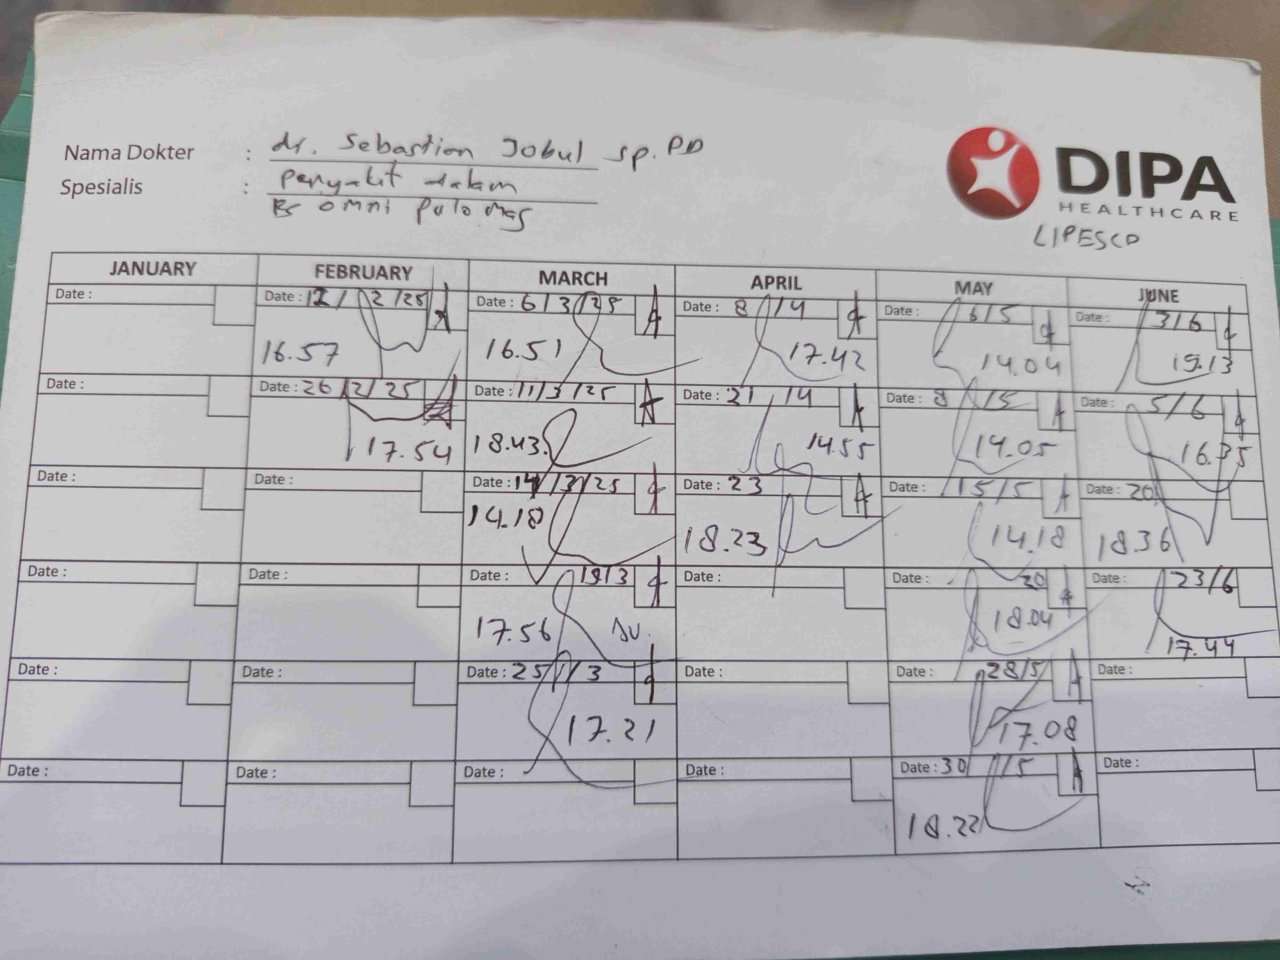 Nama Dokter : dr. Sebastian Jobul sp.PD
Spesialis : Penyakit dalam
Rs omni pulo mas
DIPA
HEALTHCARE
LIPESCO
JANUARY FEBRUARY MARCH APRIL MAY JUNE
Date : Date : 12/2/25 Date : 6/3/25 Date : 8/4 Date : 6/5 Date : 3/6
16.57 16.51 17.42 14.04 19.13
Date : Date : 26/2/25 Date : 11/3/25 Date : 21/4 Date : 8/5 Date : 5/6
17.54 18.43 14.55 14.05 16.35
Date : Date : Date : 14/3/25 Date : 23 Date : 15/5 Date : 20
14.18 18.23 14.18 18.36
Date : Date : Date : 19/3 Date : Date : 20 Date : 23/6
17.56 18.04 17.44
Date : Date : Date : 25/3 Date : Date : 28/5 Date :
17.21 17.08
Date : Date : Date : Date : Date : 30/5 Date :
18.22